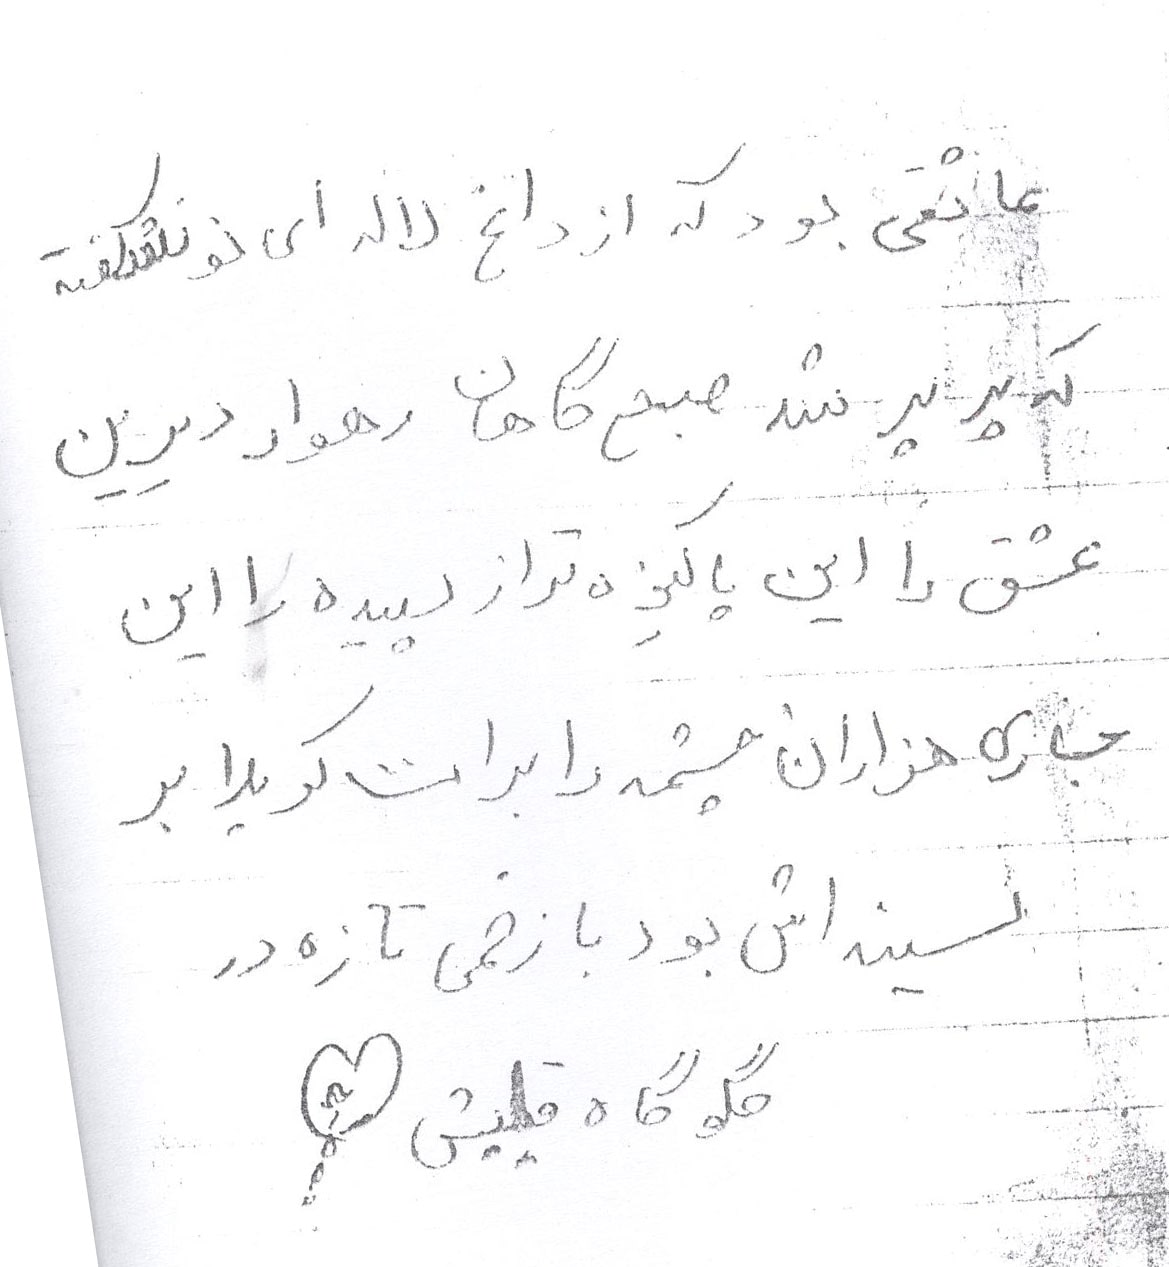 عاشقی بود که از داغ لاله ای نو شکفته
که پر پر شد صبح گاهان رهوار دیرین
عشق را این پاکیزه تر از سپیده را این
جاری هزاران چشمه را برات کویرا بر
سینه اش بود با زخمی تازه در
گلو گاه قلبش